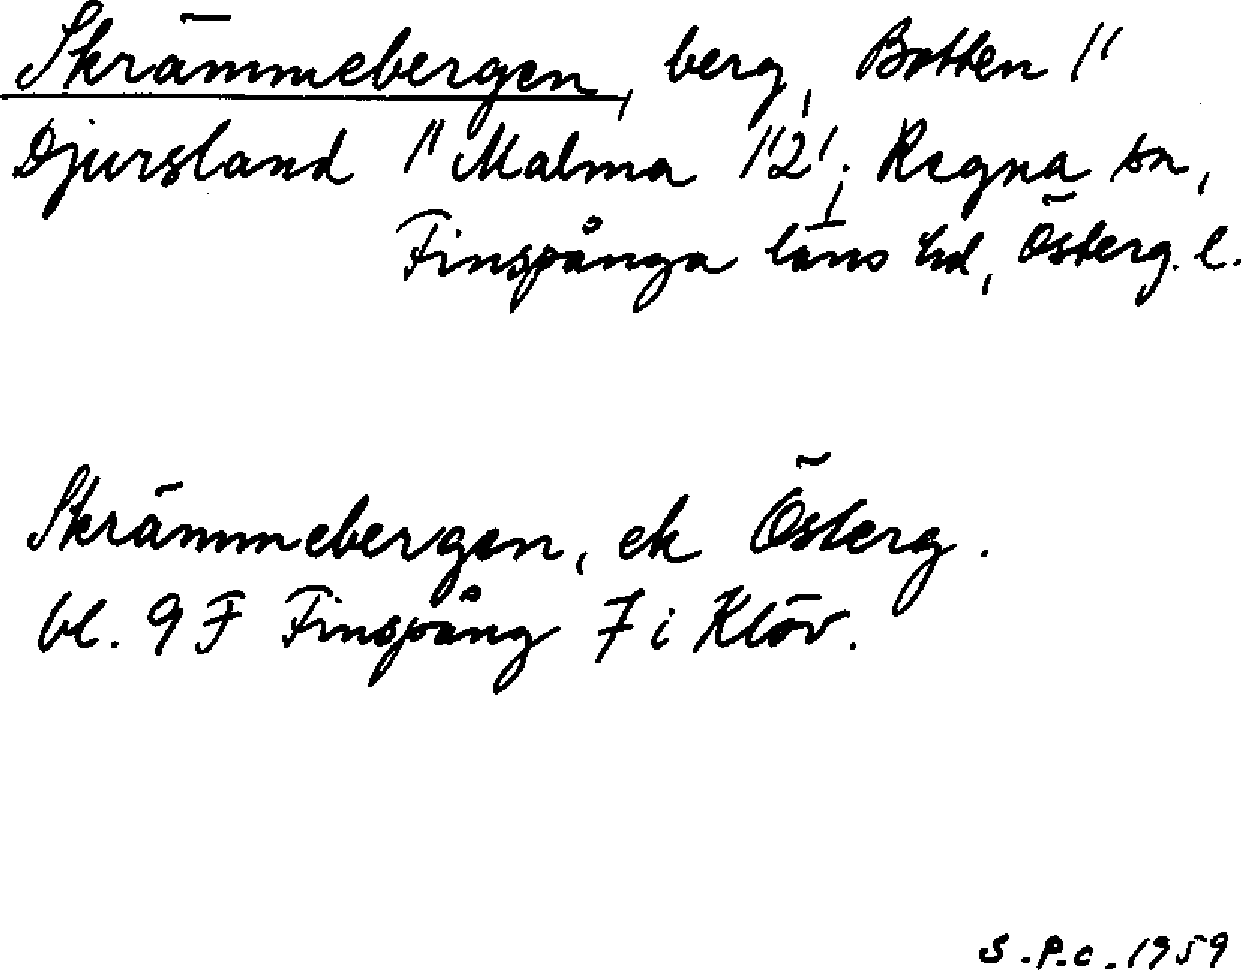 Skrämmebergen, berg, Botten 1/1
Djursland 1/1 Malma 1/2; Regna sn,
Finspånga läns hd, Österg. l.
Skrämmebergen, ek Österg.
bl. 9 F Finspång 7 i Klöv.
S.P.c. 1959